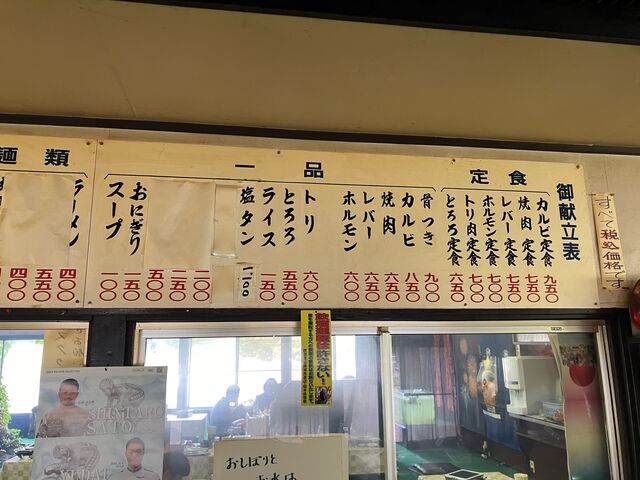 御献立表
定食
カルビ定食 九五〇
焼肉定食 七五〇
レバー定食 七五〇
ホルモン定食 七〇〇
トリ肉定食 七〇〇
とろろ定食 六五〇
一品
骨つき 九〇〇
カルビ 八五〇
焼肉 六五〇
レバー 六五〇
ホルモン 六五〇
トリ 六〇〇
とろろ 五五〇
ライス 一五〇
塩タン 一一〇〇
二〇〇
二五〇
五〇〇
おにぎり 一五〇
スープ 一〇〇
麺類
ラーメン 四〇〇
五五〇
四〇〇
すべて税込価格です
おしぼりと
お水は
SHINTARO
SATO